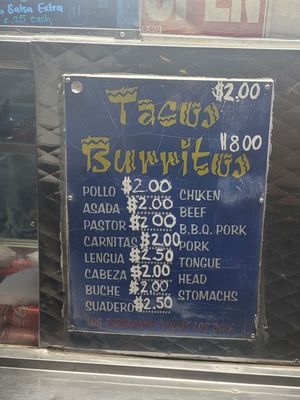 Salsa Extra
.25 each
OPEN
Tacos $2.00
Burritos 8.00
POLLO $2.00 CHIKEN
ASADA $2.00 BEEF
PASTOR $2.00 B.B.Q. PORK
CARNITAS $2.00 PORK
LENGUA $2.50 TONGUE
CABEZA $2.00 HEAD
BUCHE $2.00 STOMACHS
SUADERO $2.50